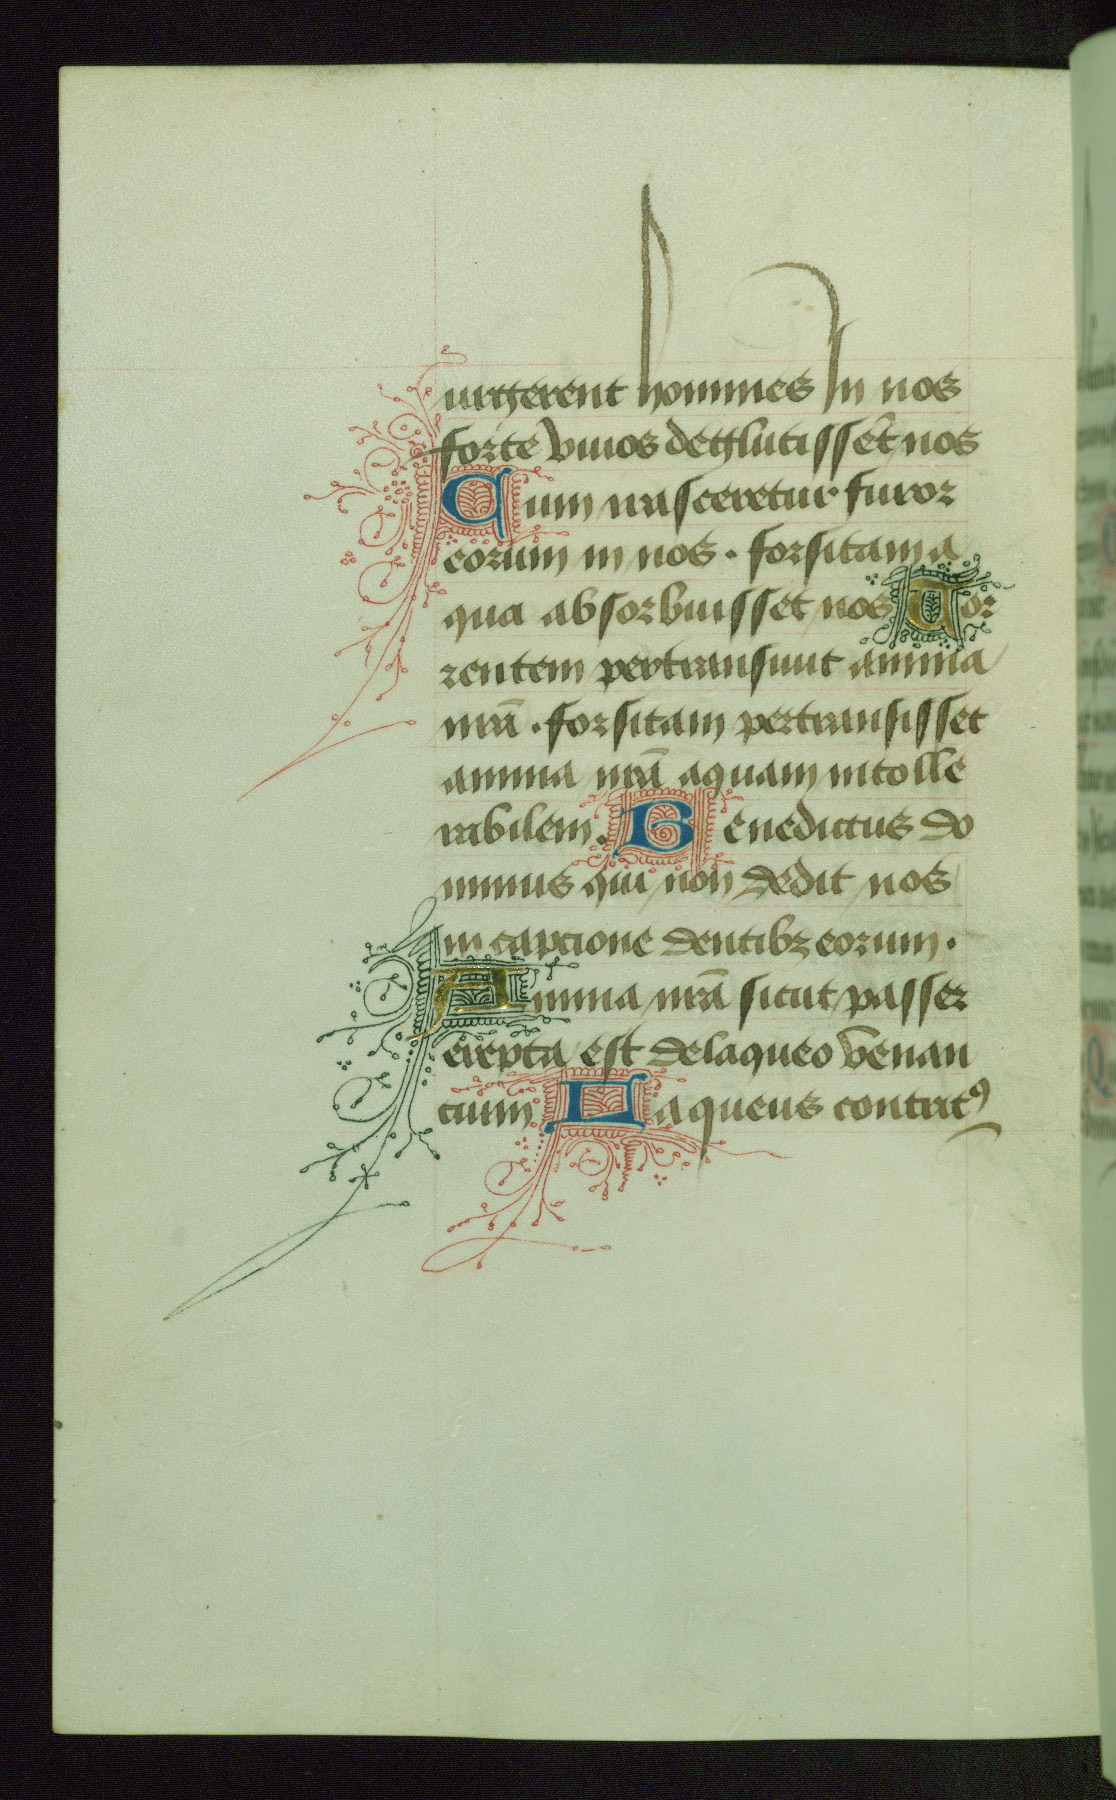 surgerent homines in nos
forte viuos deglutisset nos
Cum irasceretur furor
eorum in nos · forsitam a
qua absorbuisset nos Tor
rentem pertransiuit anima
nrā · forsitam pertransisset
anima nrā aquam intolle
rabilem. Benedictus do
minus qui non dedit nos
in captione dentibꝫ eorum ·
Anima nrā sicut passer
erepta est de laqueo venan
cium Laqueus contritꝰ